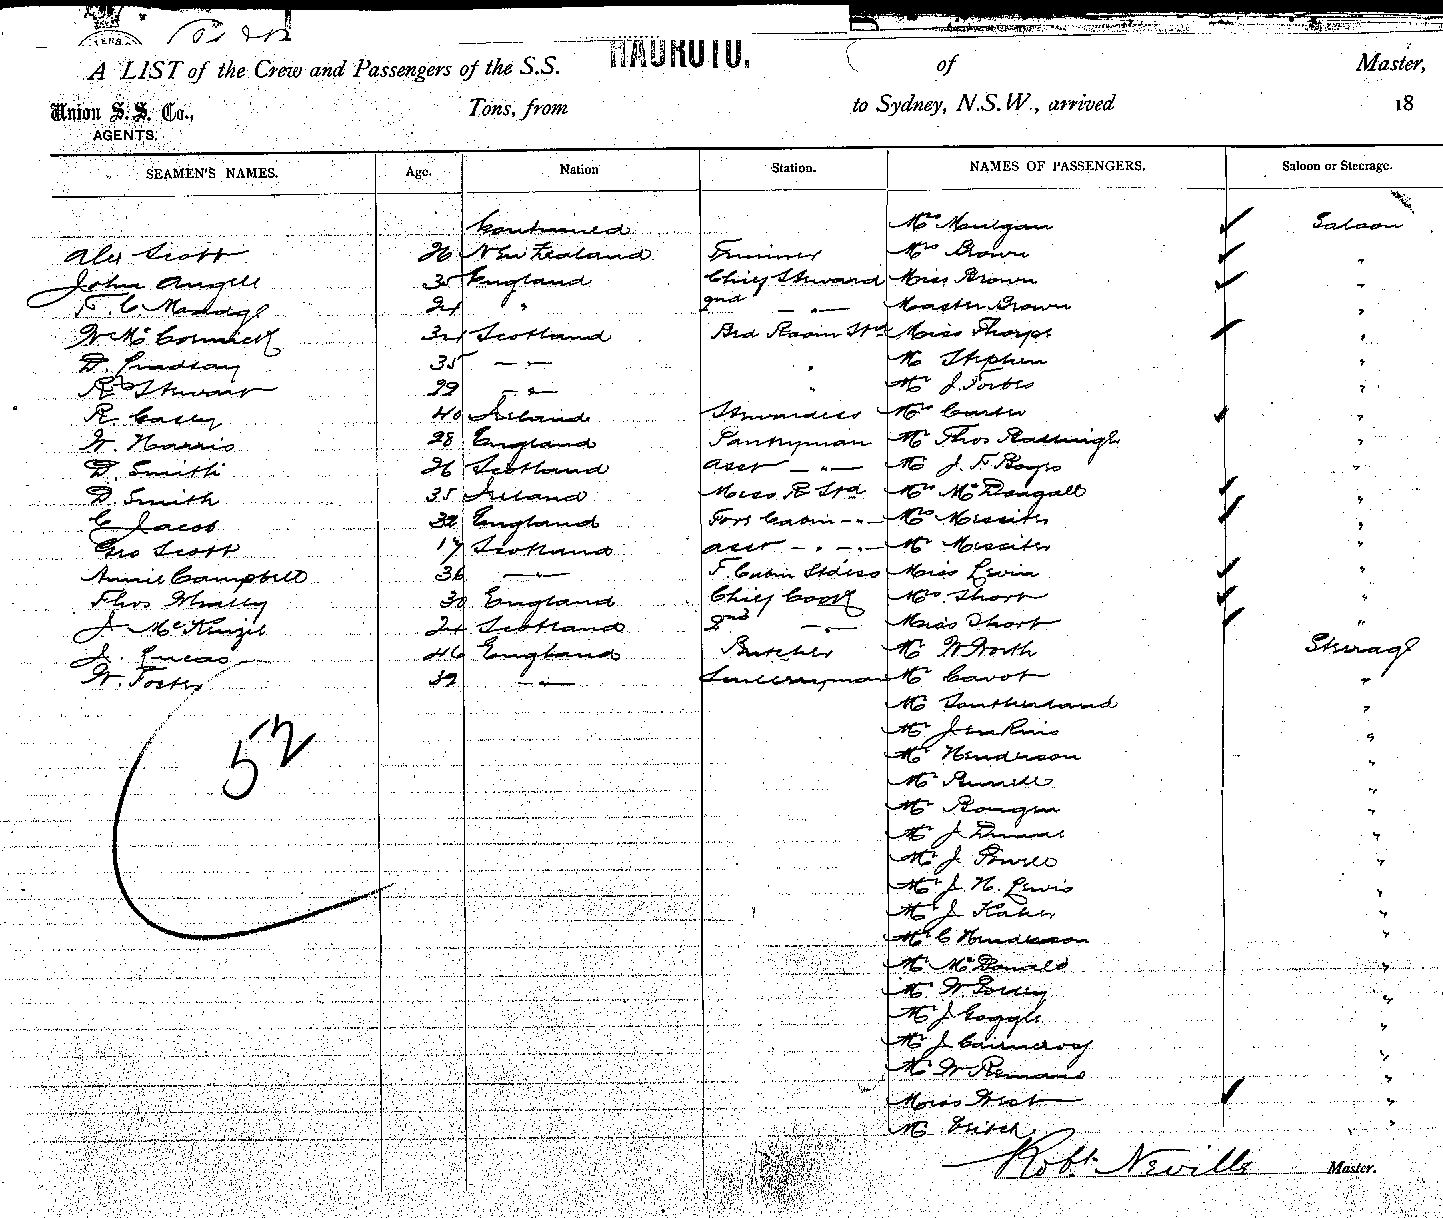 HAUROTO.
A LIST of the Crew and Passengers of the S.S. of Master,
Union S.S. Co., Tons, from to Sydney, N.S.W., arrived 18
AGENTS.
SEAMEN'S NAMES. Age. Nation Station. NAMES OF PASSENGERS. Saloon or Steerage.
Continued Mrs Saloon
Alex Scott 26 New Zealand Trimmer Mrs Brown "
John Angell 35 England Chief Steward Miss Brown "
F. C. 24 " 2nd — " — Master Brown "
W. McCormick 34 Scotland Bed Room Std Miss Thorpe "
D. Lindsay 35 — " — " Mr Stephen "
R. Stewart 22 — " — " Mr J. Forbes "
R. Casey 40 Ireland Stewardess Mrs Carter "
W. Harris 28 England Pantryman Mr Thos "
D. Smith 26 Scotland Asst — " — Mr J. F. "
D. Smith 35 Ireland Mess R Std Mrs McDougall "
C. Jacob 32 England Fore Cabin — " — Mrs Messiter "
Geo Scott 17 Scotland Asst — " — " — Mr Messiter "
Annie Campbell 36 — " — F. Cabin Stdess Miss Levin "
Thos Whally 30 England Chief Cook Mrs Short "
J. McKenzie 24 Scotland 2nd — " — Miss Short "
J. Lucas 46 England Butcher Mr W North Steerage
W. Foster 32 — " — Scullerryman Mr Cavot "
Mr Southerland "
Mr Jenkins "
52 Mr Henderson "
Mr "
Mr "
Mr J "
Mr J. Powell "
Mr J. H. Lewis "
Mr J "
Mr C Henderson "
Mr McDonald "
Mr W. "
Mr J "
Mr J Cairncross "
Mr W "
Miss West "
Mr "
Robt Neville Master.